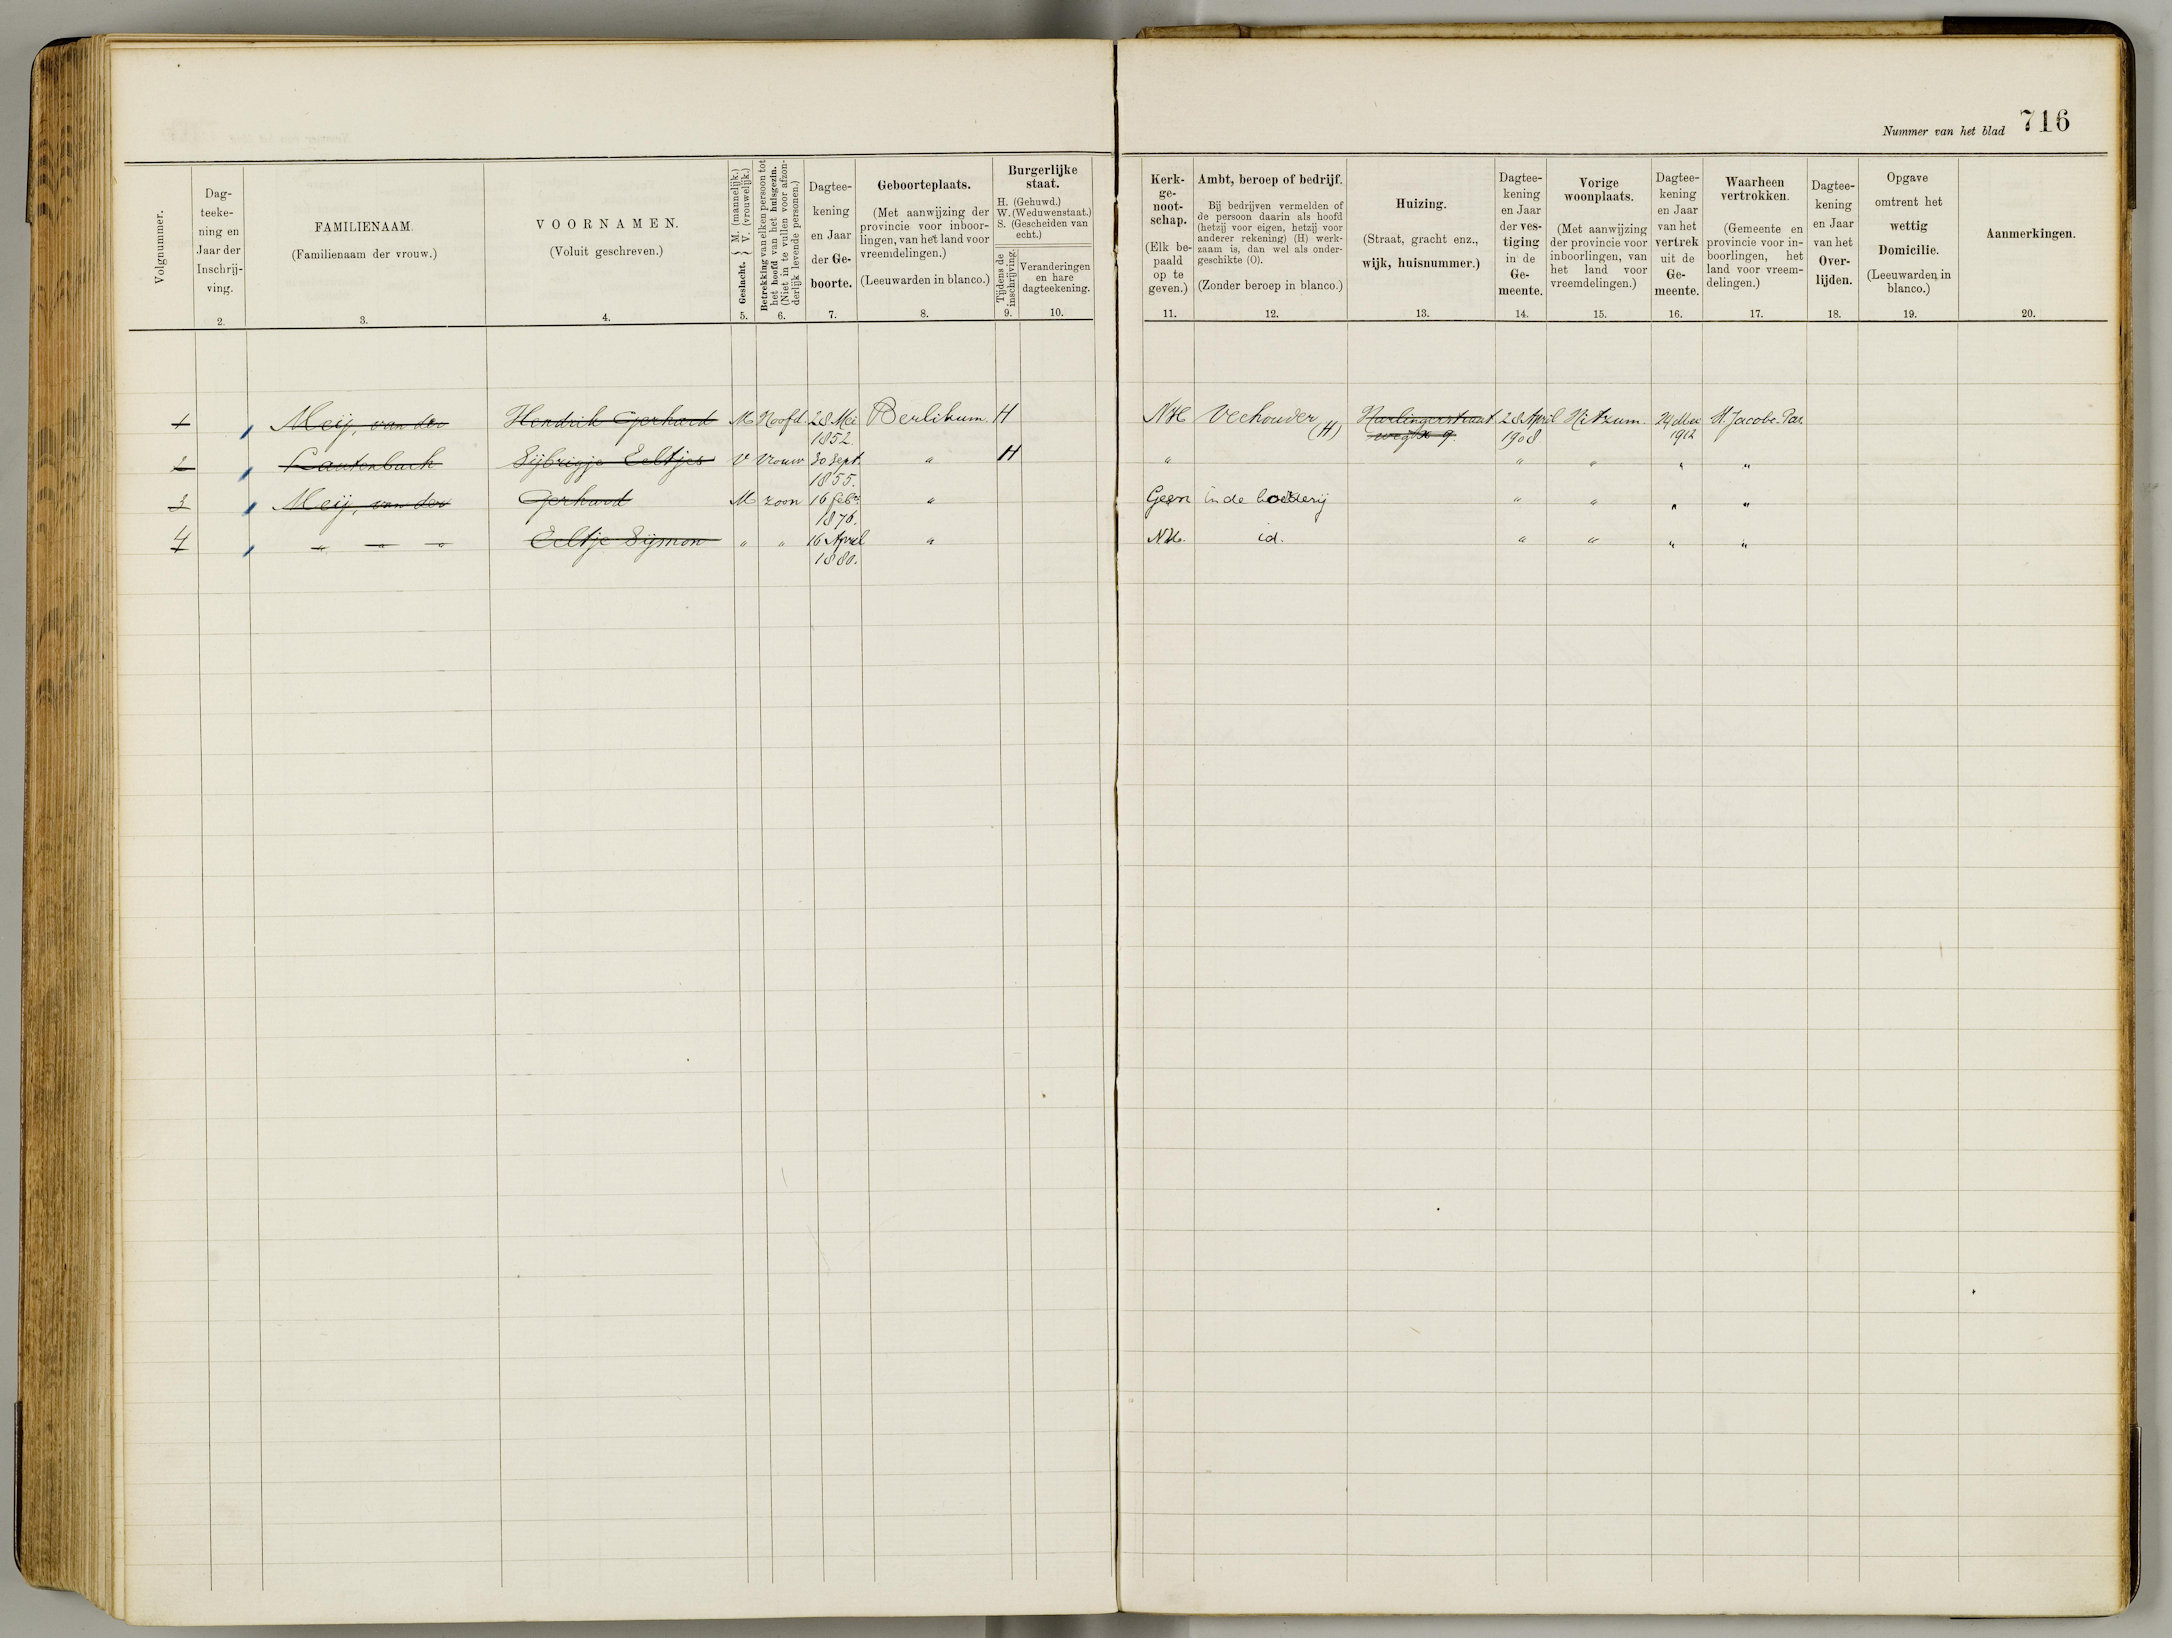 Nummer van het blad 716
Volgnummer.
Dag-
teeke-
ning en
Jaar der
Inschrij-
ving.
2.
FAMILIENAAM.
(Familienaam der vrouw.)
3.
VOORNAMEN.
(Voluit geschreven.)
4.
Geslacht. } M. (mannelijk.)
V. (vrouwelijk.)
5.
Betrekking van elken persoon tot
het hoofd van het huisgezin.
(Niet in te vullen voor afzon-
derlijk levende personen.)
6.
Dagtee-
kening
en Jaar
der Ge-
boorte.
7.
Geboorteplaats.
(Met aanwijzing der
provincie voor inboor-
lingen, van het land voor
vreemdelingen.)
(Leeuwarden in blanco.)
8.
Burgerlijke
staat.
H. (Gehuwd.)
W. (Weduwenstaat.)
S. (Gescheiden van
echt.)
Tijdens de
inschrijving.
9.
Veranderingen
en hare
dagteekening.
10.
Kerk-
ge-
noot-
schap.
(Elk be-
paald
op te
geven.)
11.
Ambt, beroep of bedrijf.
Bij bedrijven vermelden of
de persoon daarin als hoofd
(hetzij voor eigen, hetzij voor
anderer rekening) (H) werk-
zaam is, dan wel als onder-
geschikte (O).
(Zonder beroep in blanco.)
12.
Huizing.
(Straat, gracht enz.,
wijk, huisnummer.)
13.
Dagtee-
kening
en Jaar
der ves-
tiging
in de
Ge-
meente.
14.
Vorige
woonplaats.
(Met aanwijzing
der provincie voor
inboorlingen, van
het land voor
vreemdelingen.)
15.
Dagtee-
kening
en Jaar
van het
vertrek
uit de
Ge-
meente.
16.
Waarheen
vertrokken.
(Gemeente en
provincie voor in-
boorlingen, het
land voor vreem-
delingen.)
17.
Dagtee-
kening
en Jaar
van het
Over-
lijden.
18.
Opgave
omtrent het
wettig
Domicilie.
(Leeuwarden in
blanco.)
19.
Aanmerkingen.
20.
1 Meij, van der Hendrik Gerhard M Hoofd 28 Mei Berlikum. H NH Veehouder (H) Harlingerstraat 28 April Hitzum. 29 Mei St. Jacobi-Par.
1852. weg 9. 1908 1912
2 Lautenbach Sijbrigje Eeltjes V Vrouw 30 Sept. " H " " " " "
1855.
3 Meij, van der Gerhard M zoon 16 Feb. " Geen in de boerderij " " " "
1876.
4 " " " Eeltje Sijmon " " 16 April " NH. id. " " " "
1880.